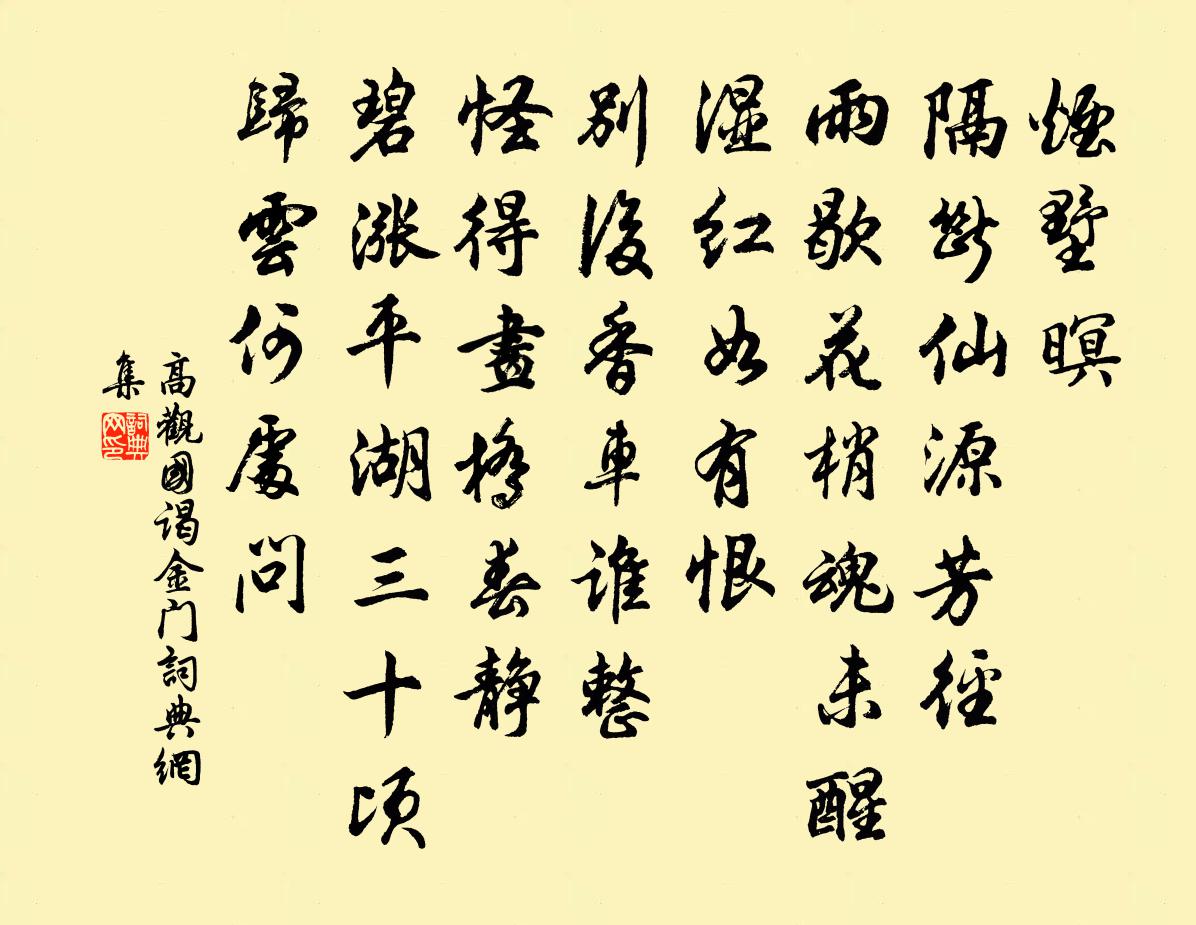 煙墅暝
隔斷仙源芳徑
雨歇花梢魂未醒
湿红如有恨
別後香車誰整
怪得畫橋春静
碧漲平湖三十頃
歸雲何處问
高觀國谒金门詞典網
集
詞典
网印